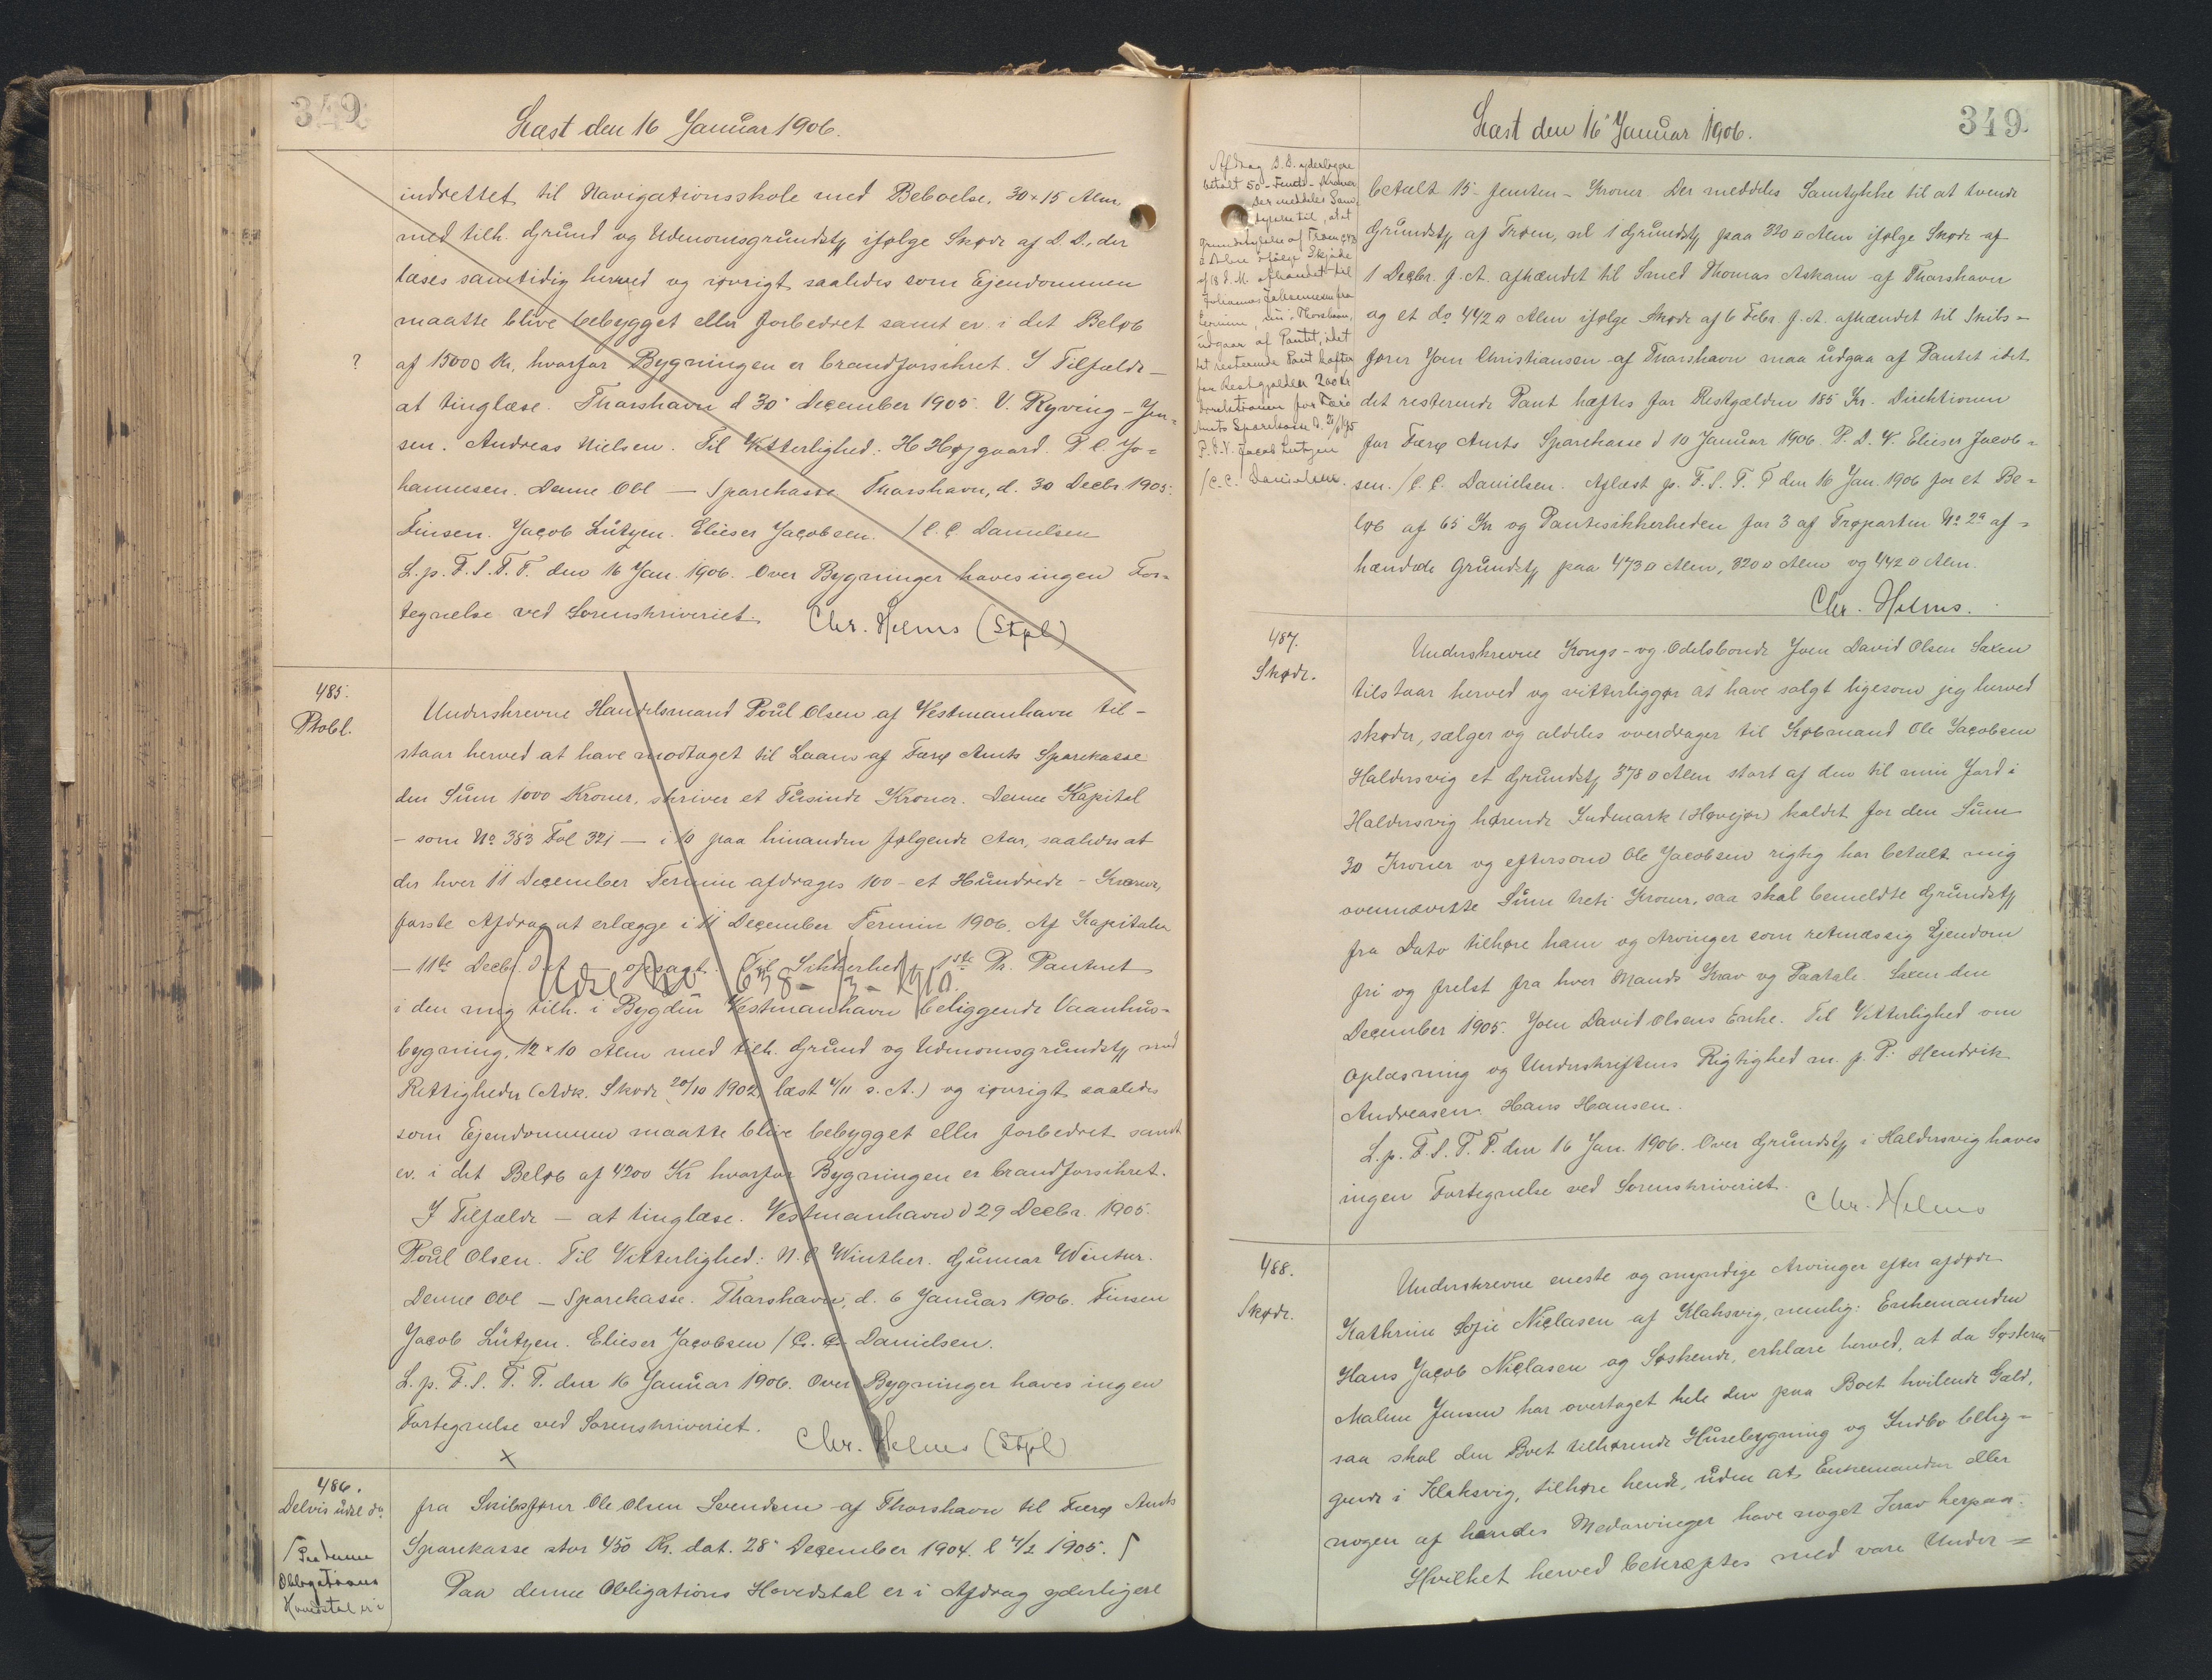 349.
Læst den 16 Januar 1906.
indrettet til Navigationsskole med Beboelse, 30 x 15 Alen,
med tilh. Grund og Udenomsgrundst. ifølge Skøde af D. D., der
læses samtidig herved og iøvrigt saaledes som Ejendommen
maatte blive bebygget eller forbedret samt ev. i det Beløb
?
af 15000 Kr, hvorfor Bygningen er brandforsikret. I Tilfælde —
at tinglæse. Thorshavn d 30' December 1905. V. Ryving-Jen-
sen. Andreas Nielsen. Til Vitterlighed: H Højgaard. P C. Jo-
hannesen. Denne Obl — Sparekasse Thorshavn, d. 30 Decbr. 1905.
Finsen. Jacob Lützen. Elieser Jacobsen. / C. C. Danielsen
L. p. F. S. T. P. den 16 Jan. 1906. Over Bygninger haves ingen For-
tegnelse ved Sorenskriveriet. Chr. Helms (Stpl)
485.
Ptobl.
Underskrevne Handelsmand Poul Olsen af Vestmanhavn til-
staar herved at have modtaget til Laans af Færø Amts Sparekasse
den Sum 1000 Kroner, skriver et Tusinde Kroner. Denne Kapital
- som No 383 Fol 321 — i 10 paa hinanden følgende Aar, saaledes at
der hver 11 December Termin afdrages 100 - et Hundrede - Kroner,
første Afdrag at erlægge i 11 December Termin 1906. Af Kapitalen
— 11te Decbr. d. A. — opsagt. Til Sikkerhed 1ste Pr. Panteret
Udsl No 638 - 13 - 1910.
i den mig tilh. i Bygden Vestmanhavn beliggende Vaanhus-
bygning, 12 x 10 Alen med tilh. Grund og Udenomsgrundst. med
Rettigheder (Adk. Skøde 20/10 1902, læst 4/11 s. A.) og iøvrigt saaledes
som Ejendommen maatte blive bebygget eller forbedret samt
ev. i det Beløb af 4200 Kr hvorfor Bygningen er brandforsikret.
I Tilfælde — at tinglæse. Vestmanhavn d 29 Decbr. 1905.
Poul Olsen. Til Vitterlighed: N. C Winther. Gunnar Winter.
Denne Obl — Sparekasse. Thorshavn, d. 6 Januar 1906. Finsen
Jacob Lützen. Elieser Jacobsen / C. C. Danielsen.
L. p. F. S. T. P. den 16 Januar 1906. Over Bygninger haves ingen
Fortegnelse ved Sorenskriveriet. Chr. Helms (Stpl)
x
486.
Delvis udsl do
fra Skibsfører Ole Olsen Svendsen af Thorshavn til Færø Amts
Sparekasse stor 450 Kr. dat. 28' December 1904. l 4/2 1905.
Paa denne Obligations Hovedstol er i Afdrag yderligere
/ Paa denne
Obligations
Hovedstol er i
349.
Læst den 16' Januar 1906.
Afdrag D. D. yderligere
betalt 50 - Femti - Kroner
Der meddeles Sam-
tykke til, at et
Grundstykke af Trøen
Alen ifølge Skjøde
af 18 d. M. afhændet til
Johannes Johannesen fra
Thorshavn,
udgaar af Pantet, idet
det resterende Pant hæfter
for Restgjælden 200 Kr
Direktionen for Færø
Amts Sparekasse d.
P. D. V. Jacob Lützen
/ C. C. Danielsen.
betalt 15 - femten - Kroner. Der meddeles Samtykke til at tvende
Grundst. af Trøen, sel 1 Grundst. paa 320 □ Alen ifølge Skøde af
1 Decbr. f. A. afhændet til Smed Thomas Askam af Thorshavn
og et do 442 □ Alen ifølge Skøde af 6 Febr. f. A. afhændet til Skibs-
fører Joen Christiansen af Thorshavn maa udgaa af Pantet idet
det resterende Pant hæftes for Restgælden 185 Kr. Direktionen
for Færø Amts Sparekasse d 10 Januar 1906. P. D. V. Elieser Jacob-
sen. / C. C. Danielsen. Aflæst p. F. S. T. P den 16 Jan. 1906 for et Be-
løb af 65 Kr og Pantesikkerheden for 3 af Trøparten No 2a af-
hændede Grundst. paa 473 □ Alen, 320 □ Alen og 442 □ Alen.
Chr. Helms.
487.
Skøde.
Underskrevne Kongs- og Odelsbonde Joen David Olsen Saxen
tilstaar herved og vitterliggør at have solgt ligesom jeg herved
skøder, sælger og aldeles overdrager til Købmand Ole Jacobsen
Haldersvig et Grundst. 378 □ Alen stort af den til min Jord i
Haldersvig hørende Indmark (Høvejør) kaldet for den Sum
30 Kroner og eftersom Ole Jacobsen rigtig har betalt mig
ovennævnte Sum treti Kroner, saa skal bemeldte Grundst.
fra Dato tilhøre ham og Arvinger som retmæssig Ejendom
fri og frelst fra hver Mands Krav og Paatale. Saxen den
December 1905. Joen David Olsens Enke. Til Vitterlighed om
Oplæsning og Underskriftens Rigtighed m. p. P: Hendrik
Andreasen. Hans Hansen.
L. p. F. S. T. P. den 16 Jan. 1906. Over Grundst. i Haldersvig haves
ingen Fortegnelse ved Sorenskriveriet. Chr. Helms
488.
Skøde.
Underskrevne eneste og myndige Arvinger efter afdøde
Kathrine Sofie Niclasen af Klaksvig, nemlig: Enkemanden
Hans Jacob Niclasen og Søskende, erklære herved, at da Søsteren
Malene Jensen har overtaget hele den paa Boet hvilende Gæld,
saa skal den Boet tilhørende Husebygning og Indbo belig-
gende i Klaksvig, tilhøre hende, uden at Enkemanden eller
nogen af hendes Medarvinger have noget Krav herpaa.
Hvilket herved bekræftes med vare Under=